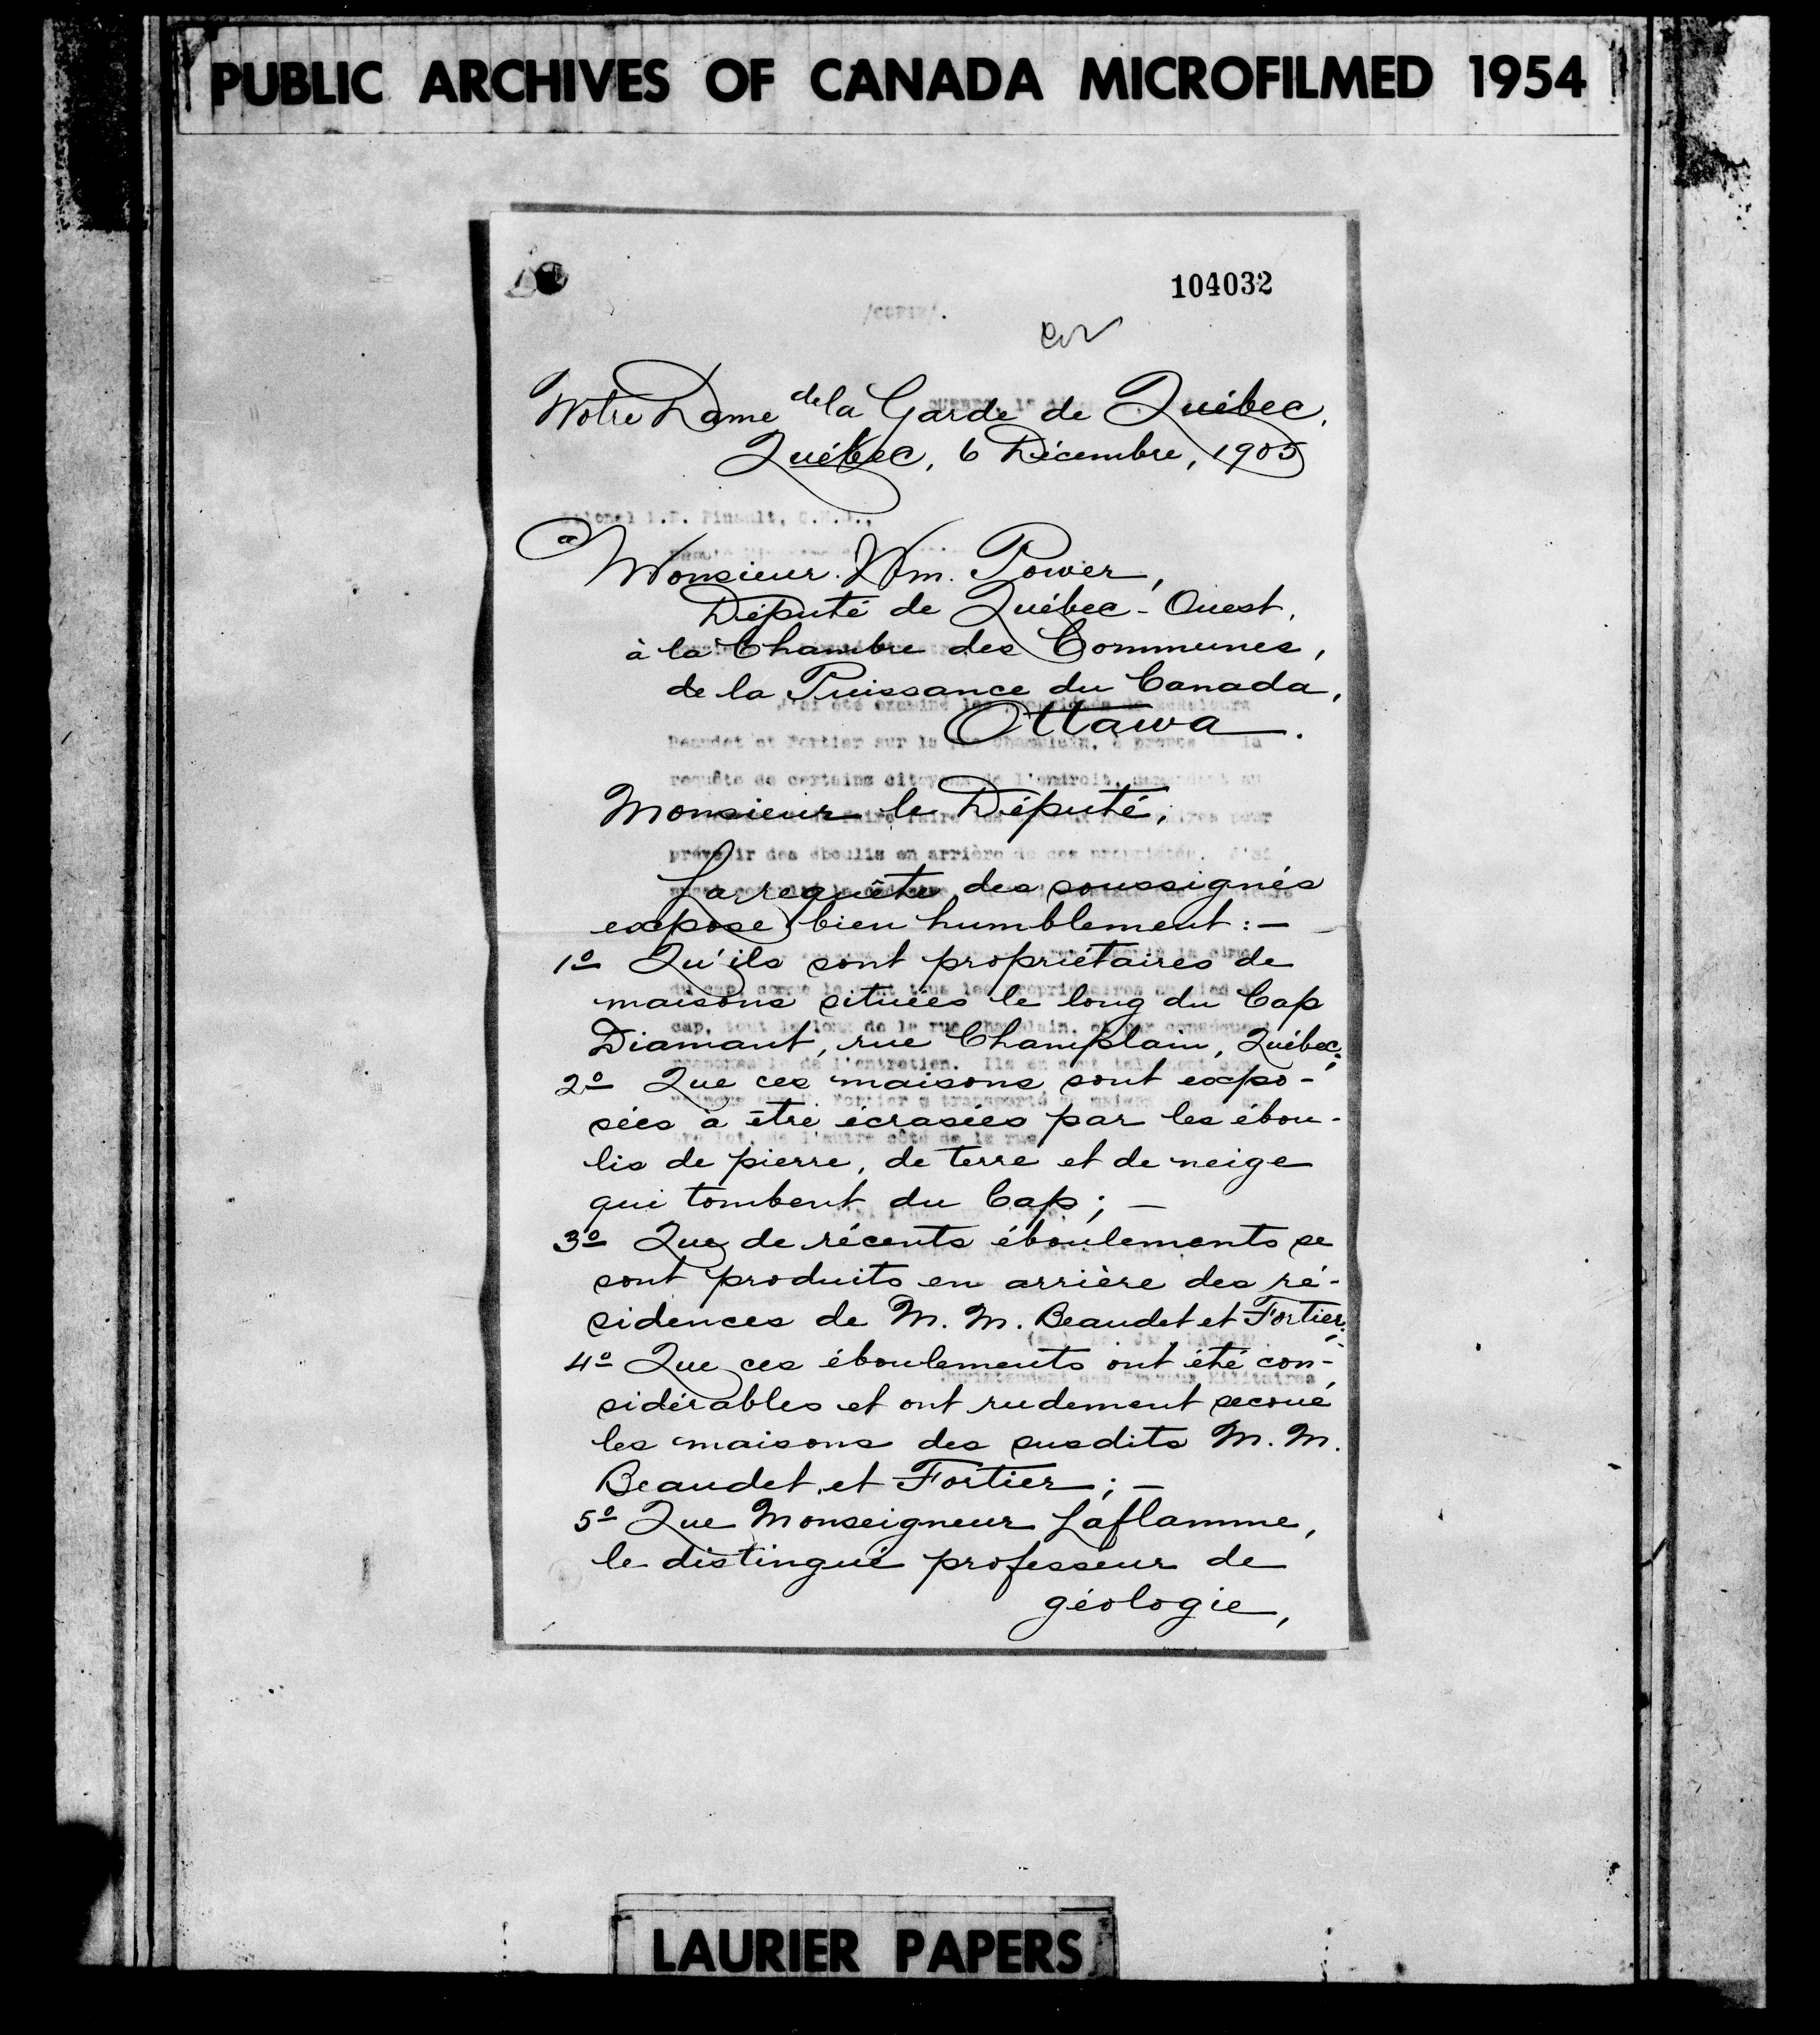 PUBLIC ARCHIVES OF CANADA MICROFILMED 1954
104032
Notre Dame de la Garde de Québec,
Québec, 6 Décembre, 1905
a
Monsieur Wm. Power,
Député de Québec-Ouest,
à la Chambre des Communes,
de la Puissance du Canada,
Ottawa.
Monsieur le Député,
La requête des soussignés
expose bien humblement:—
1º Qu'ils sont propriétaires de
maisons situées le long du Cap
Diamant, rue Champlain, Québec;
2º Que ces maisons sont expo-
sées à être écrasées par les ébou-
lis de pierre, de terre et de neige
qui tombent du Cap; —
3º Que de récents éboulements se
sont produits en arrière des ré-
sidences de M. M. Beaudet et Fortier;
4º Que ces éboulements ont été con-
sidérables et ont rudement secoué
les maisons des susdits M. M.
Beaudet et Fortier; —
5º Que Monseigneur Laflamme,
le distingué professeur de
géologie,
LAURIER PAPERS